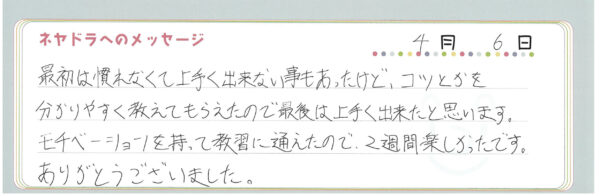 ネヤドラへのメッセージ 4月 6日
最初は慣れなくて上手く出来ない事もあったけど、コツとかを
分かりやすく教えてもらえたので最後は上手く出来たと思います。
モチベーションを持って教習に通えたので、2週間楽しかったです。
ありがとうございました。